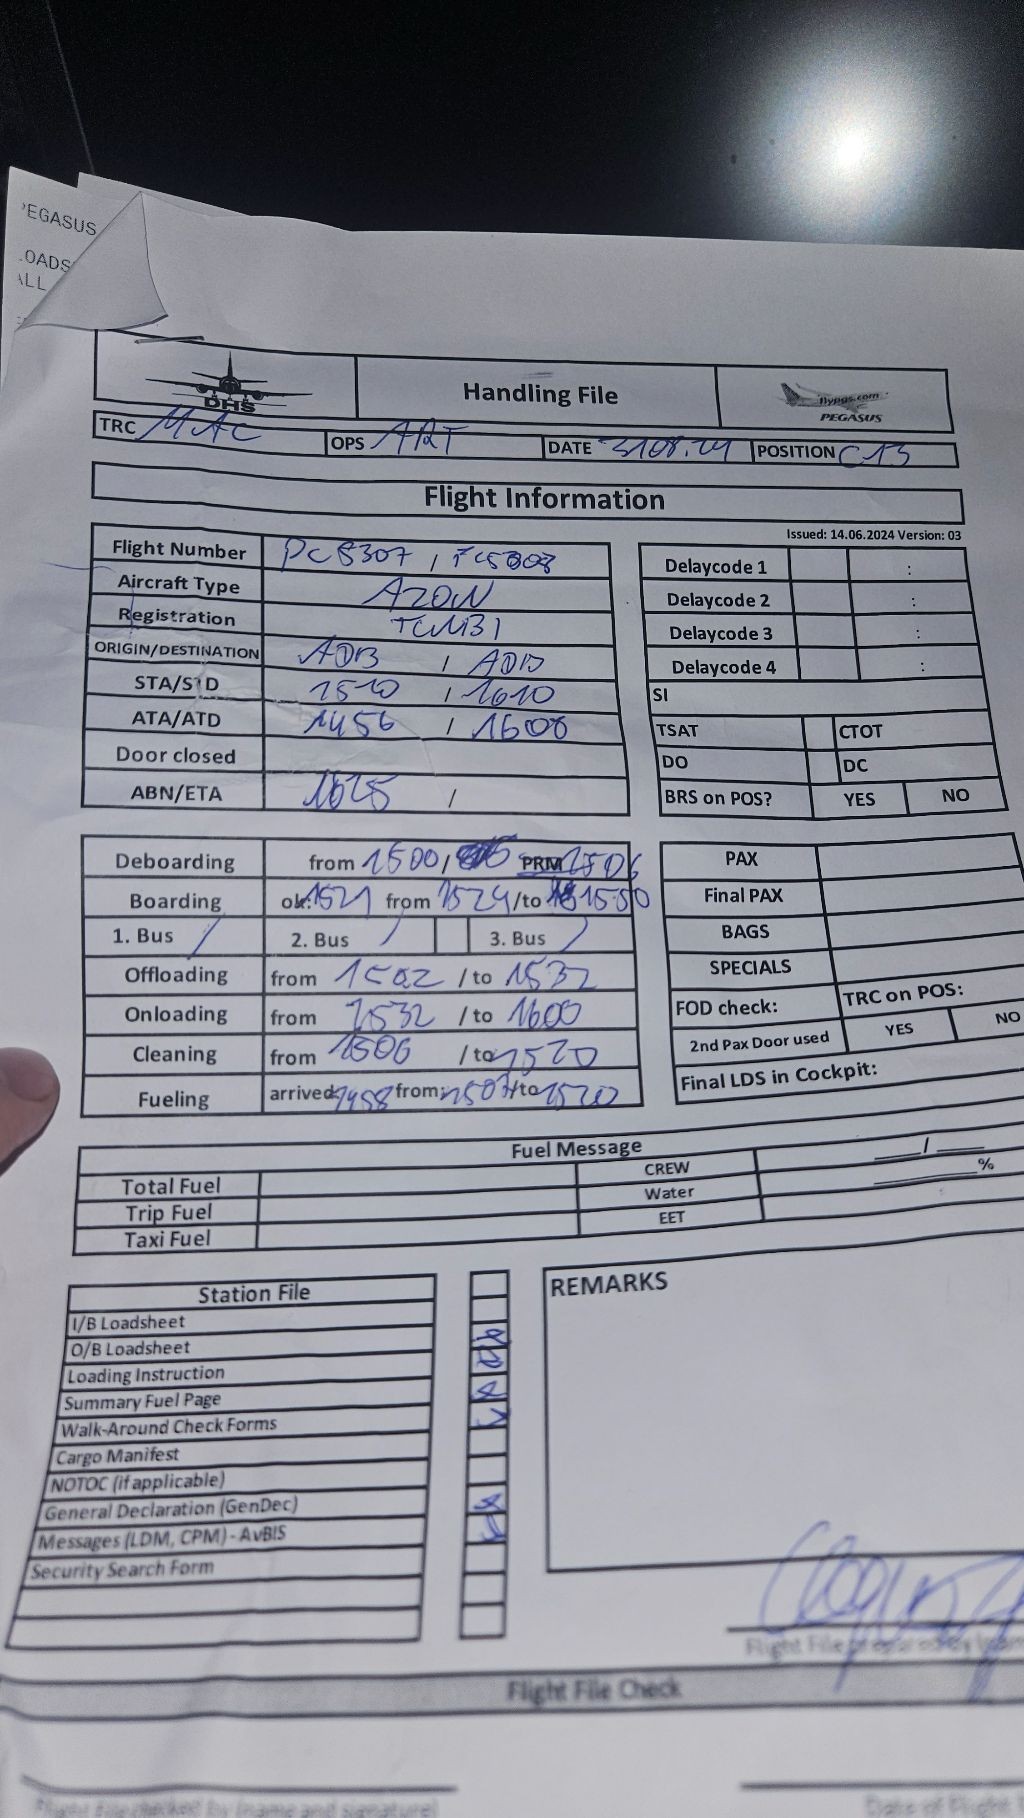 PEGASUS
LOADS
ALL
DHS
Handling File
flypgs.com
PEGASUS
TRC MAC OPS ART DATE 3108.24 POSITION C13
Flight Information
Issued: 14.06.2024 Version: 03
Flight Number PC5307 / PC5308
Aircraft Type A20N
Registration
ORIGIN/DESTINATION ADB / ADB
STA/STD 1510 / 1610
ATA/ATD 1456 / 1608
Door closed
ABN/ETA /
Delaycode 1 :
Delaycode 2 :
Delaycode 3 :
Delaycode 4 :
SI
TSAT CTOT
DO DC
BRS on POS? YES NO
Deboarding from 1500 / PRM 1506
Boarding ok: 1521 from 1524 /to 1550
1. Bus / 2. Bus / 3. Bus /
Offloading from 1502 / to 1532
Onloading from 1532 / to 1600
Cleaning from 1506 / to 1520
Fueling arrived 1458 from: 1507 /to 1520
PAX
Final PAX
BAGS
SPECIALS
FOD check: TRC on POS:
2nd Pax Door used YES NO
Final LDS in Cockpit:
Fuel Message
Total Fuel CREW /
Trip Fuel Water %
Taxi Fuel EET :
Station File
I/B Loadsheet
O/B Loadsheet
Loading Instruction
Summary Fuel Page
Walk-Around Check Forms
Cargo Manifest
NOTOC (if applicable)
General Declaration (GenDec)
Messages (LDM, CPM) - AvBIS
Security Search Form
REMARKS
Flight File prepared by
Flight File Check
Flight File checked by (name and signature)
Date of Flight